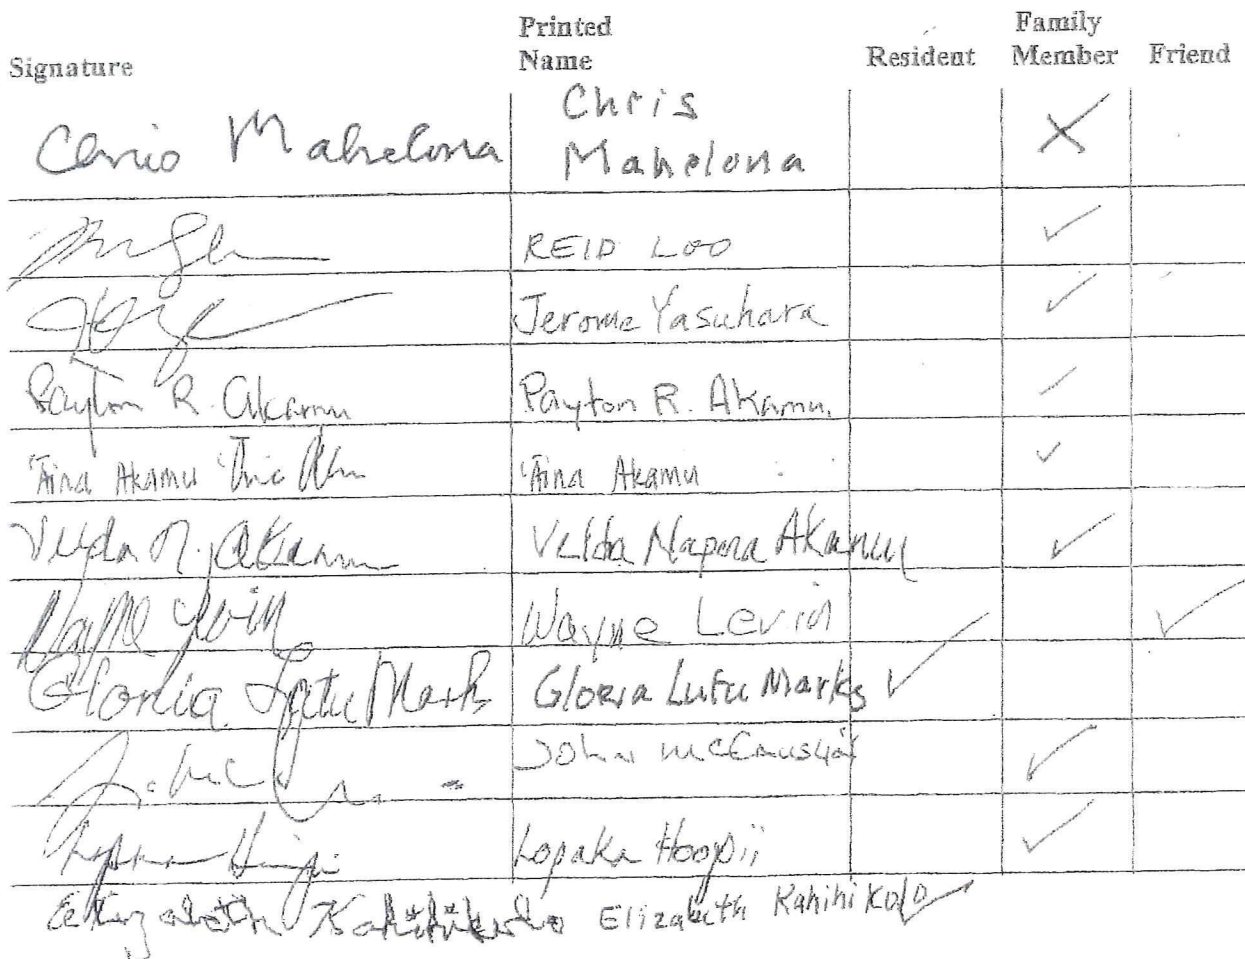 Signature Printed Name Resident Family Member Friend
Chris Mahelona Chris Mahelona
REID LOO
Jerome Yasuhara
Payton R. Akamu Payton R. Akamu.
'Āina Akamu 'Āina Akamu
Velda N. Akamu Velda Napua Akamu
Wayne Levin Wayne Levin
Gloria Lutu Marks Gloria Lutu Marks
John
Lopaka Hoopii
Elizabeth Kahihikolo Elizabeth Kahihikolo